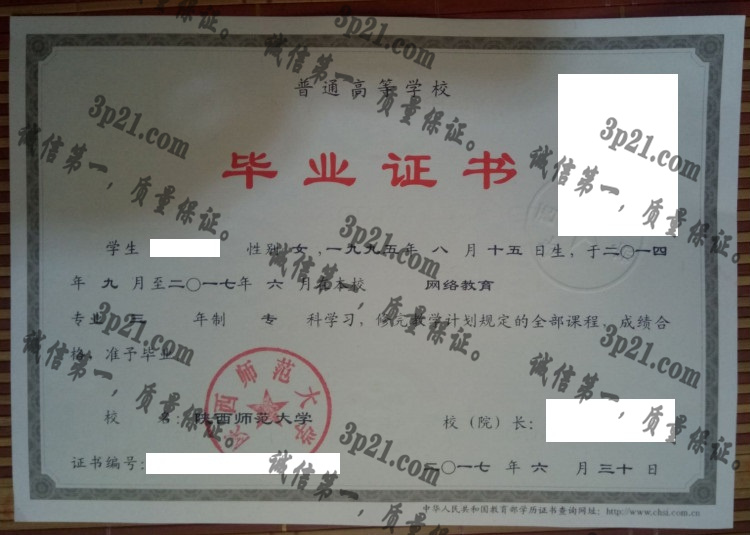 普通高等学校
毕业证书
学生 性别 女 ，一九九五年 八 月 十五 日生，于二〇一四
年 九 月至二〇一七年 六 月在本校 网络教育
专业 三 年制 专 科学习，修完教学计划规定的全部课程，成绩合
格，准予毕业
校 名：陕西师范大学 校（院）长：
陕西师范大学
证书编号： 二〇一七 年 六 月 三十 日
中华人民共和国教育部学历证书查询网址：http://www.chsi.com.cn
3p21.com
诚信第一，质量保证。
3p21.com
诚信第一，质量保证。
3p21.com
诚信第一，质量保证。
3p21.com
诚信第一，质量保证。
3p21.com
诚信第一，质量保证。
3p21.com
诚信第一，质量保证。
3p21.com
诚信第一，质量保证。